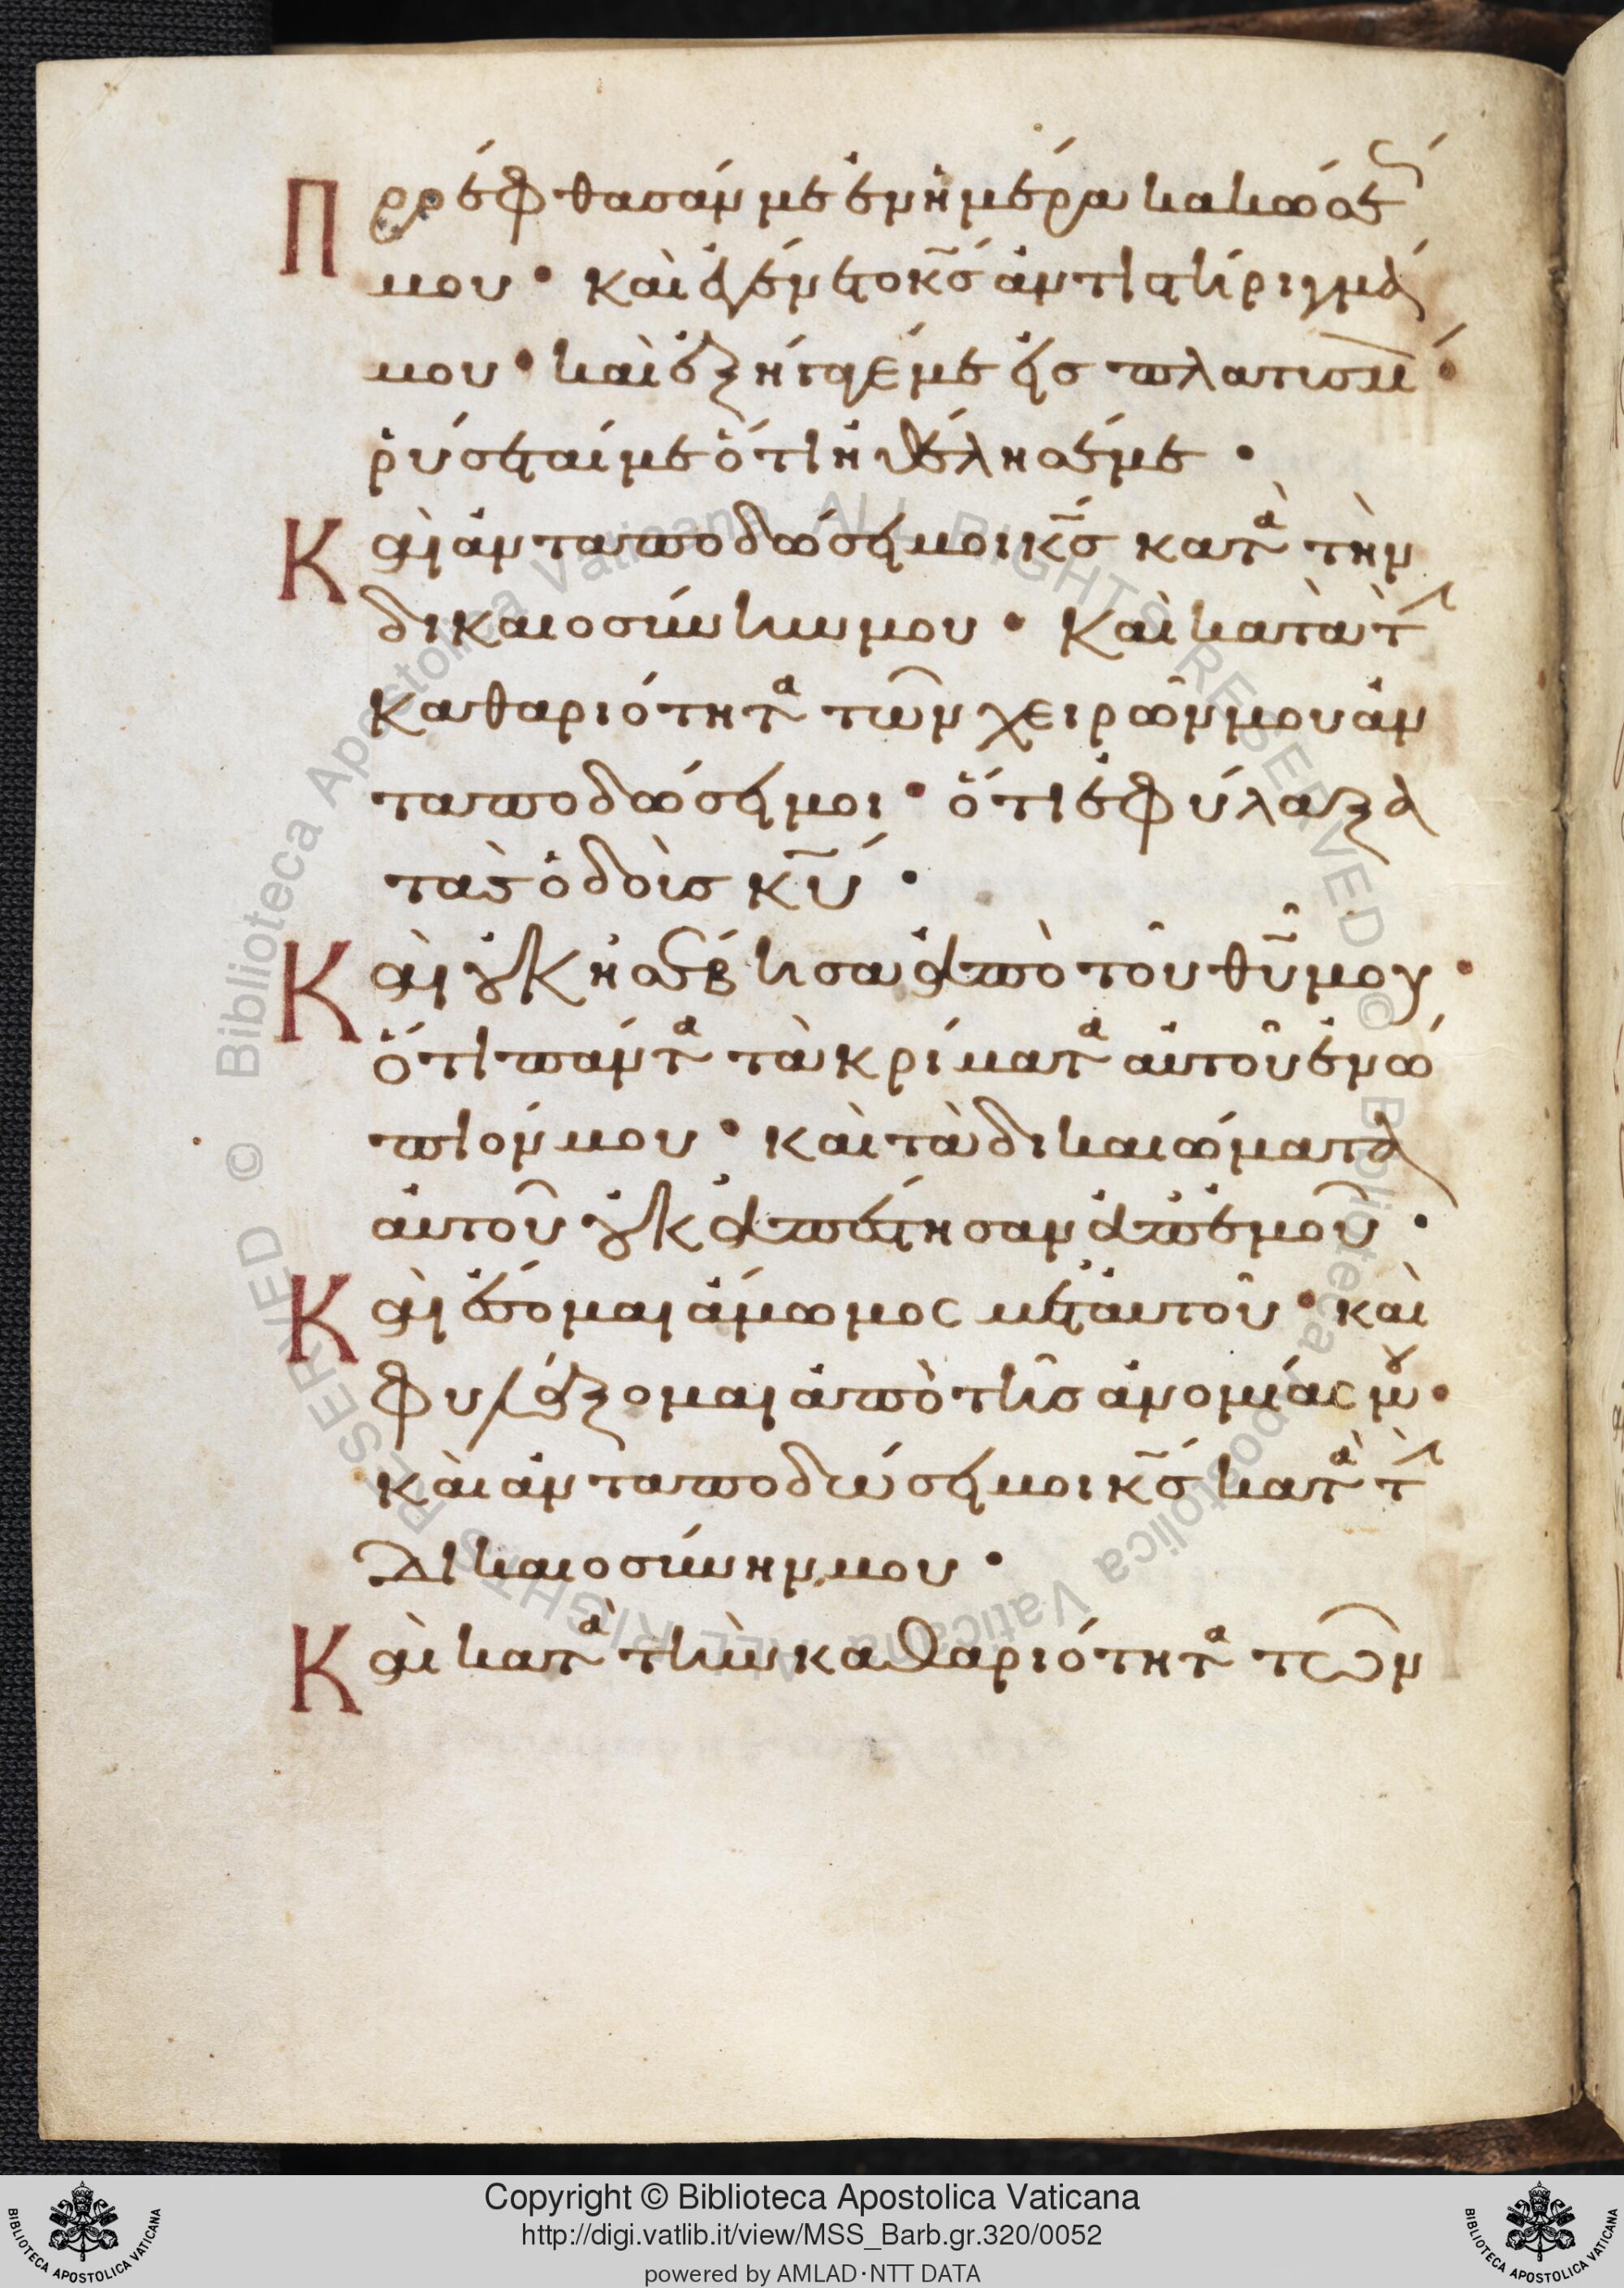 Προέφθασάν με ἐν ἡμέρα κακώσε
μου · καὶ ἐγένετο κ̅σ̅ ἀντιστήριγμά
μου · καὶ ἐξήγαγέ με εἰς πλατυσμ
ῥύσεταί με ὅτι ἠθέλησέ με ·
Καὶ ἀνταποδώσει μοι κ̅σ̅ κατὰ τὴν
δικαιοσύνην μου · Καὶ κατὰ τ
καθαριότητα τῶν χειρῶν μου ἀν
ταποδώσει μοι · ὅτι ἐφύλαξα
τὰς ὁδοὺς κ̅υ̅ ·
Καὶ οὐκ ἠσέβησα ἀπὸ τοῦ θ̅υ̅ μου ·
ὅτι πάντα τὰ κρίματα αὐτοῦ ἐνώ
πιόν μου · καὶ τὰ δικαιώματα
αὐτοῦ οὐκ ἀπέστησαν ἀπ' ἐμοῦ ·
Καὶ ἔσομαι ἄμωμος μετ αὐτοῦ · καὶ
φυλάξομαι ἀπὸ τῆς ἀνομίας μου ·
καὶ ἀνταποδώσει μοι κ̅σ̅ κατὰ τ
δικαιοσύνην μου ·
Καὶ κατὰ τὴν καθαριότητα τῶν
© Biblioteca Apostolica Vaticana ALL RIGHTS RESERVED © Biblioteca Apostolica Vaticana ALL RIGHTS RESERVED
Copyright © Biblioteca Apostolica Vaticana
http://digi.vatlib.it/view/MSS_Barb.gr.320/0052
powered by AMLAD·NTT DATA
BIBLIOTECA APOSTOLICA VATICANA
BIBLIOTECA APOSTOLICA VATICANA